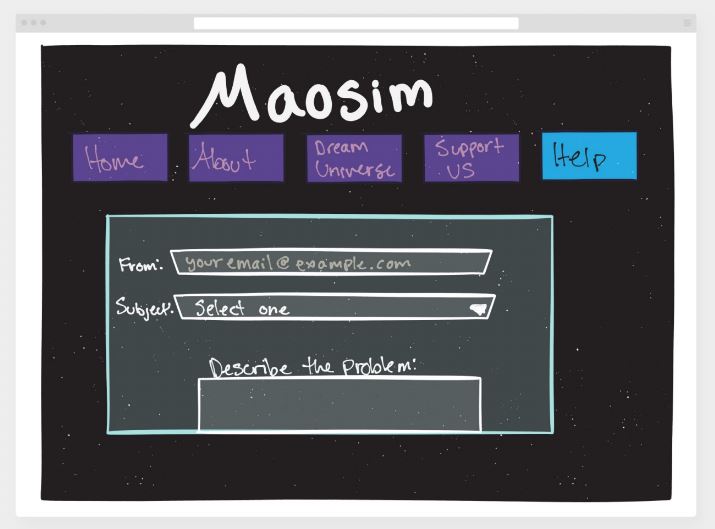 Maosim
Home
About
Dream
Universe
Support
US
Help
From:
your email@example.com
Subject:
Select one
Describe the Problem: